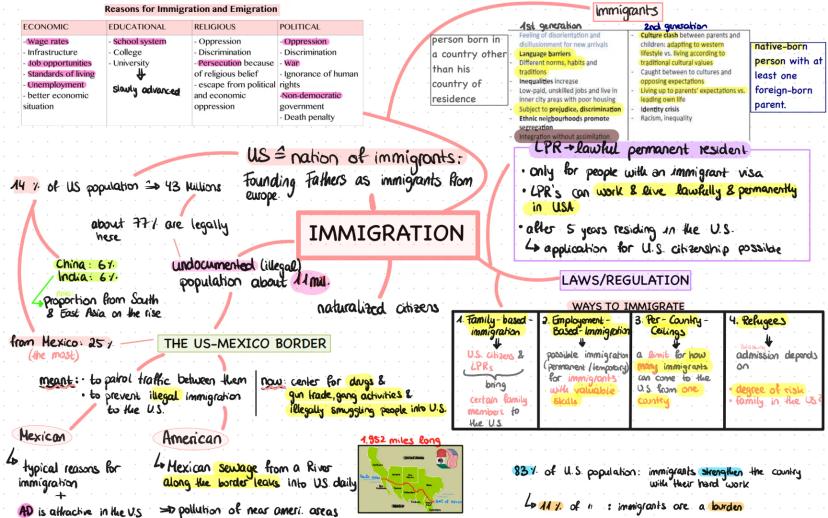 Reasons for Immigration and Emigration
ECONOMIC
- Wage rates
- Infrastructure
- Job opportunities
- Standards of living
- Unemployment
- better economic
situation
EDUCATIONAL
- School system
- College
- University
slowly advanced
RELIGIOUS
- Oppression
- Discrimination
- Persecution because
of religious belief
- escape from political
and economic
oppression
POLITICAL
- Oppression
- Discrimination
- War
- Ignorance of human
rights
- Non-democratic
government
- Death penalty
Immigrants
person born in
a country other
than his
country of
residence
1st generation
- Feeling of disorientation and
disillusionment for new arrivals
- Language barriers
- Different norms, habits and
traditions
- Inequalities increase
- Low-paid, unskilled jobs and live in
inner city areas with poor housing
- Subject to prejudice, discrimination
- Ethnic neigbourhoods promote
segregation
- Integration without assimilation
2nd generation
- Culture clash between parents and
children: adapting to western
lifestyle vs. living according to
traditional cultural values
- Caught between to cultures and
opposing expectations
- Living up to parents' expectations vs.
leading own life
- Identity crisis
- Racism, inequality
native-born
person with at
least one
foreign-born
parent.
US ≙ nation of immigrants:
Founding Fathers as immigrants from
europe.
14 % of US population => 43 Millions
about 77% are legally
here
China: 6%
India: 6%
Proportion from South
& East Asia on the rise
undocumented (illegal)
population about 11 mil.
IMMIGRATION
naturalized citizens
LPR → lawful permanent resident
• only for people with an immigrant visa
• LPR's can work & live lawfully & permanently
in USA
• after 5 years residing in the U.S.
↳ application for U.S. citizenship possible
LAWS/REGULATION
WAYS TO IMMIGRATE
1. Family-based-
immigration
U.S. citizens &
LPRs
bring
certain family
members to
the U.S.
2. Employment-
Based-Immigration
possible immigration
(permanent / temporary)
for immigrants
with valuable
skills
3. Per-Country-
Ceilings
a limit for how
many immigrants
can come to the
U.S. from one
country
4. Refugees
admission depends
on
• degree of risk
• family in the US
from Mexico: 25 %
(the most)
THE US-MEXICO BORDER
meant: • to patrol traffic between them
• to prevent illegal immigration
to the U.S.
now: center for drugs &
gun trade, gang activities &
illegally smuggling people into U.S.
Mexican
↳ typical reasons for
immigration
+
AD is attractive in the US
American
↳ Mexican sewage from a River
along the border leaks into US daily
=> pollution of near ameri. areas
1.952 miles long
83% of U.S. population: immigrants strengthen the country
with their hard work
↳ 11% of " : immigrants are a burden